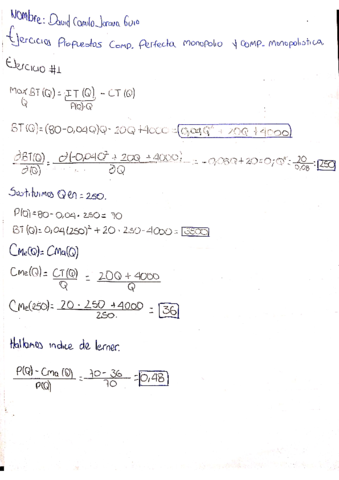 Nombre: David Camilo Jarava Guio
Ejercicios Propuestos Comp. Perfecta monopolio y comp. monopolistica
Ejercicio #1
Max BT(Q) = IT(Q) - CT(Q)
Q P(Q)·Q
BT(Q)=(80-0,04Q)Q - 20Q + 4000 = 0,04Q² + 20Q + 4000
∂BT(Q)/∂(Q) = ∂(-0,04Q² + 20Q + 4000)/∂Q = -0,08Q + 20 = 0; Q = 20/0,08 = 250
Sustituimos Q en = 250.
P(Q)=80-0,04·250=70
BT(Q)=0,04(250)² + 20·250-4000=
Cme(Q)=Cma(Q)
Cme(Q)= CT(Q)/Q = 20Q + 4000/Q
Cme(250)= 20·250+4000/250 = 36
Hallamos indice de lerner.
P(Q)-Cma(Q)/P(Q) = 70-36/70 = 0,48